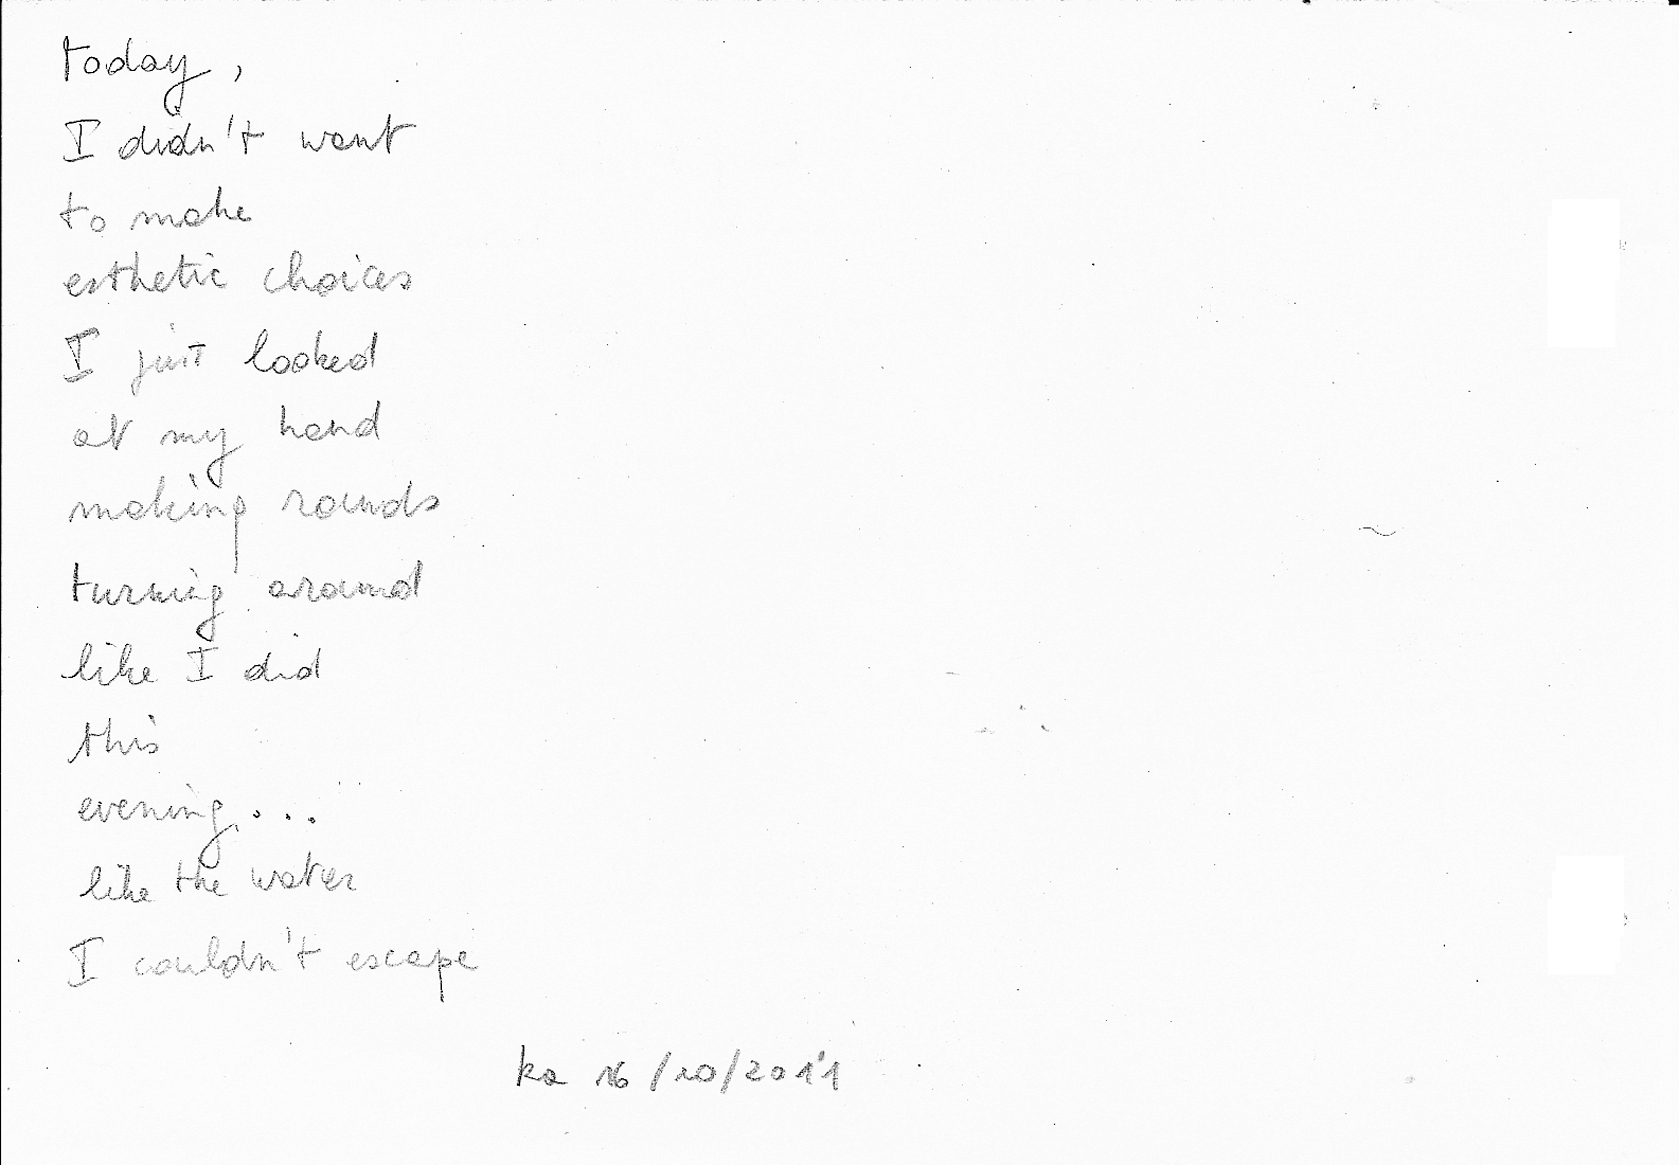 today,
I didn't want
to make
esthetic choices
I just looked
at my hand
making rounds
turning around
like I did
this
evening...
like the water
I couldn't escape
ka 16/10/2011